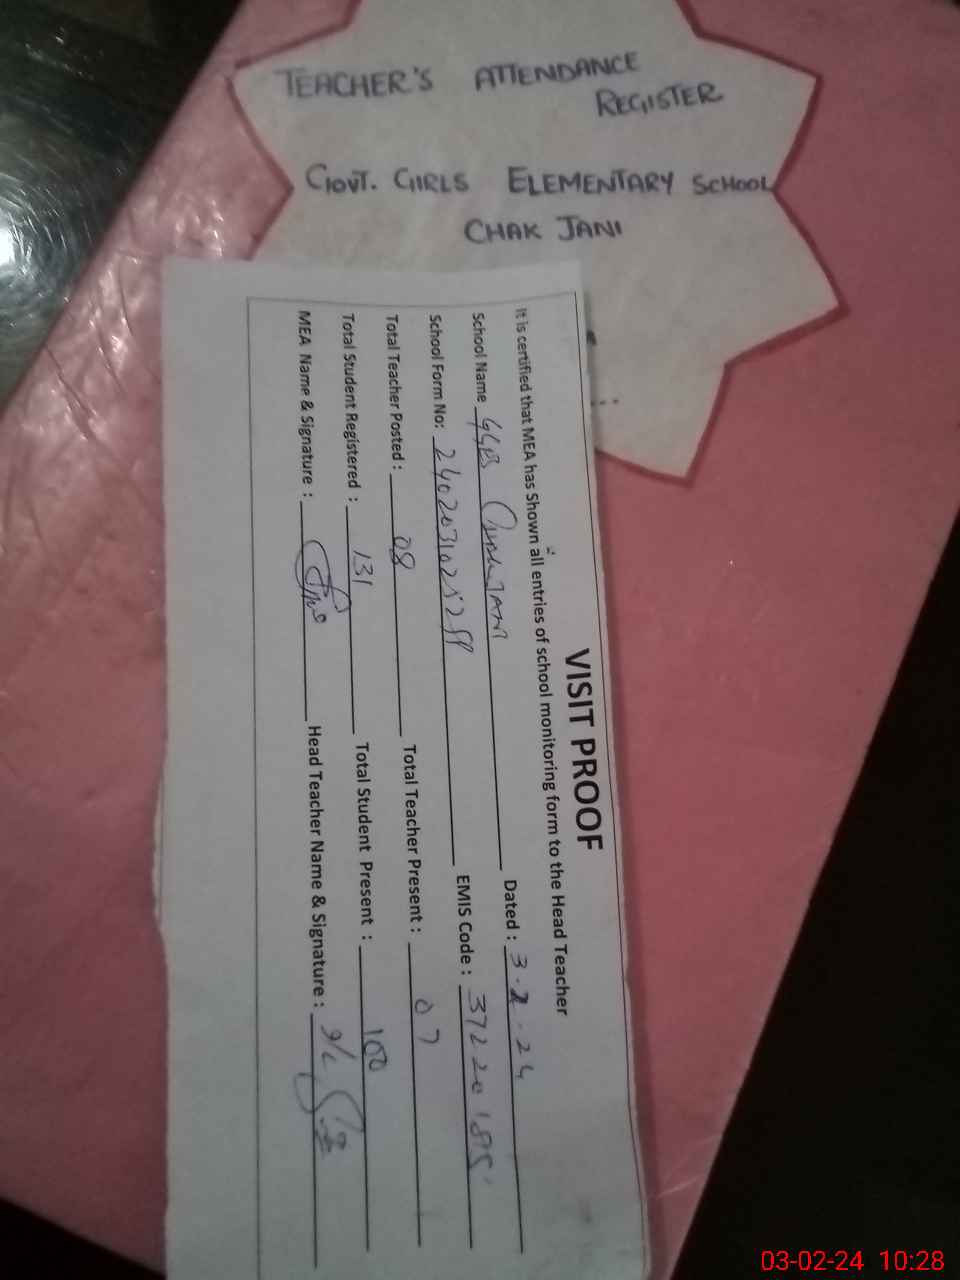 TEACHER'S ATTENDANCE
REGISTER
GOVT. GIRLS ELEMENTARY SCHOOL
CHAK JANI
VISIT PROOF
It is certified that MEA has Shown all entries of school monitoring form to the Head Teacher
School Name Dated : 3.2.24
School Form No: EMIS Code : 37220185
Total Teacher Posted : 08 Total Teacher Present : 07
Total Student Registered : 131 Total Student Present : 100
MEA Name & Signature : Head Teacher Name & Signature :
03-02-24 10:28